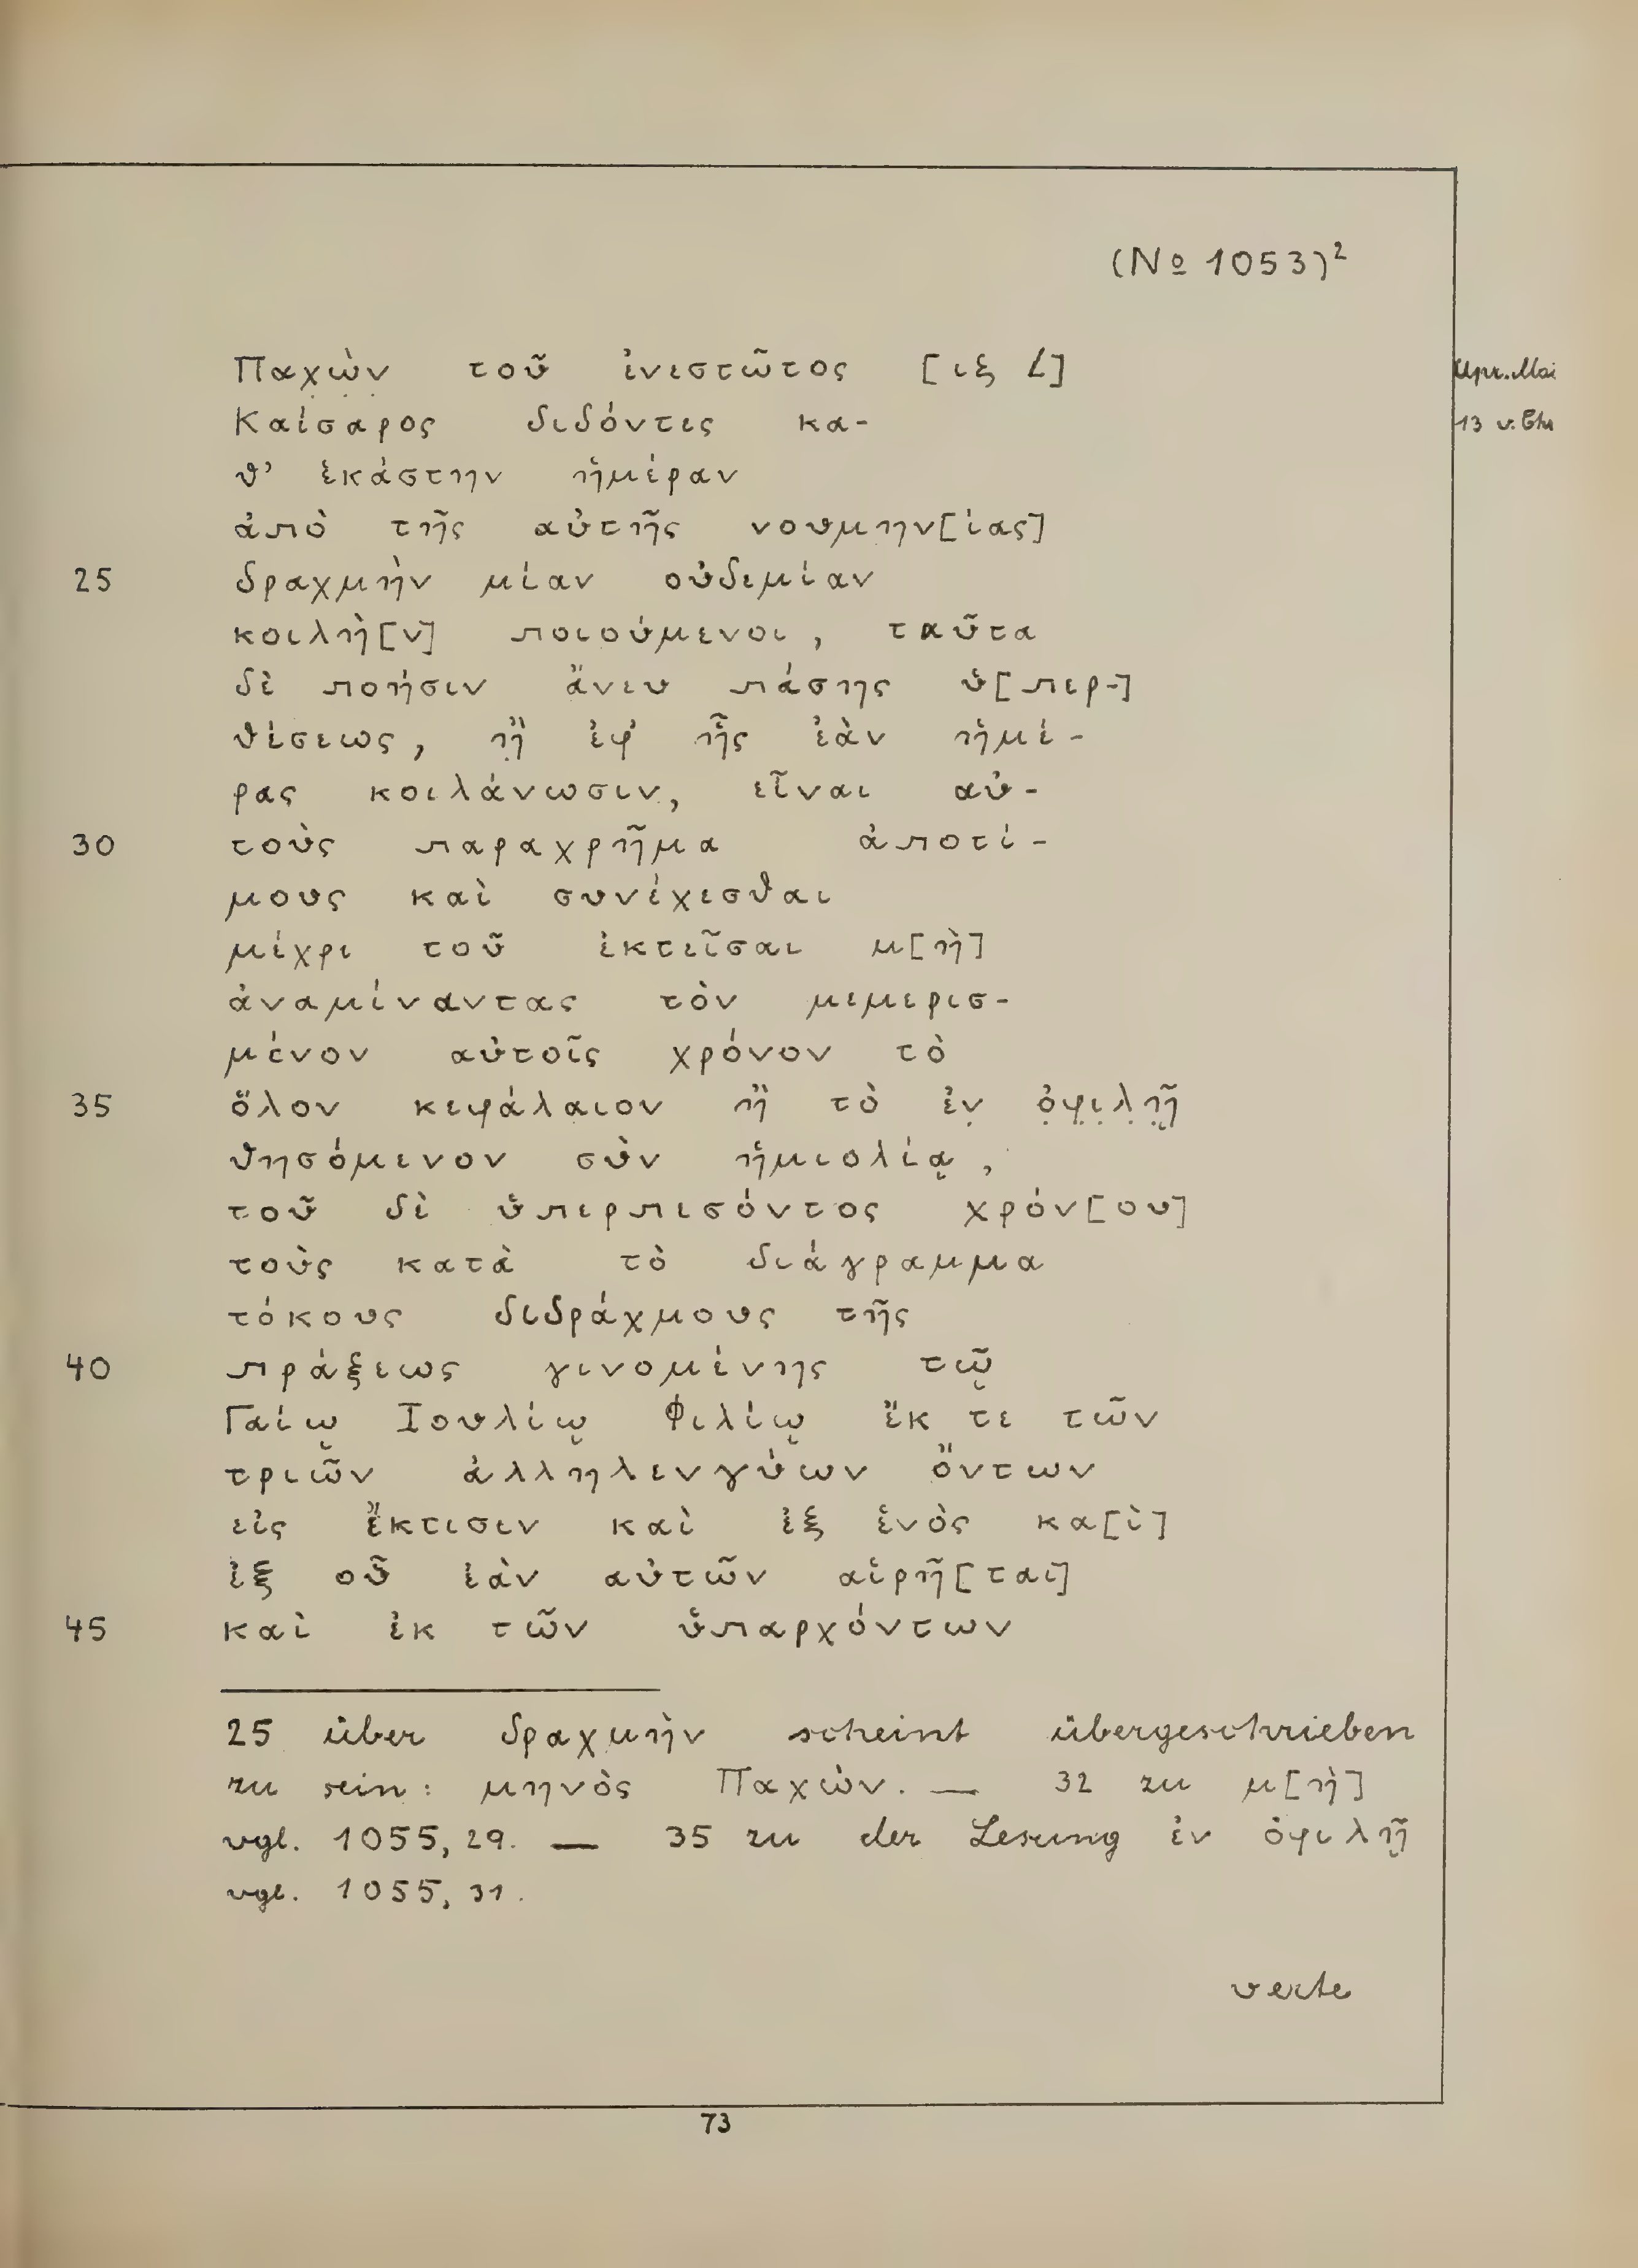 (№ 1053)²
Παχ̣ὼ̣ν̣ τοῦ ἐνεστῶτος [ιξ L] Apr. Mai
Καίσαρος διδόντες κα- 13 v. Chr
θ’ ἑκάστην ἡμέραν
ἀπὸ τῆς αὐτῆς νουμην[ίας]
25 δραχμὴν μίαν οὐδεμίαν
κοιλὴ[ν] ποιούμενοι, ταῦτα
δὲ ποήσιν ἄνευ πάσης ὑ[περ-]
θέσεως, ἢ̣ ἐφ’ ἧς ἐὰν ἡμέ-
ρας κοιλάνωσιν, εἶναι αὐ-
30 τοὺς παραχρῆμα ἀποτί-
μους καὶ συνέχεσθαι
μέχρι τοῦ ἐκτεῖσαι μ[ὴ]
ἀναμίναντας τὸν μεμερισ-
μένον αὐτοῖς χρόνον τὸ
35 ὅλον κεφάλαιον ἢ τὸ ἐν̣ ὀ̣φ̣ι̣λ̣ῇ̣
θησόμενον σὺν ἡμιολίᾳ,
τοῦ δὲ ὑπερπεσόντος χρόν[ου]
τοὺς κατὰ τὸ διάγραμμα
τόκους διδράχμους τῆς
40 πράξεως γινομένης τῷ
Γαίῳ Ἰουλίῳ Φιλίῳ ἔκ τε τῶν
τριῶν ἀλληλενγύων ὄντων
εἰς ἔκτισιν καὶ ἐξ ἑνὸς κα[ὶ]
ἐξ οὗ ἐὰν αὐτῶν αἱρῆ[ται]
45 καὶ ἐκ τῶν ὑπαρχόντων
25 über δραχμὴν scheint übergeschrieben
zu sein: μηνὸς Παχὼν. — 32 zu μ[ὴ]
vgl. 1055, 29. — 35 zu der Lesung ἐν ὀφιλῇ
vgl. 1055, 31.
verte
73